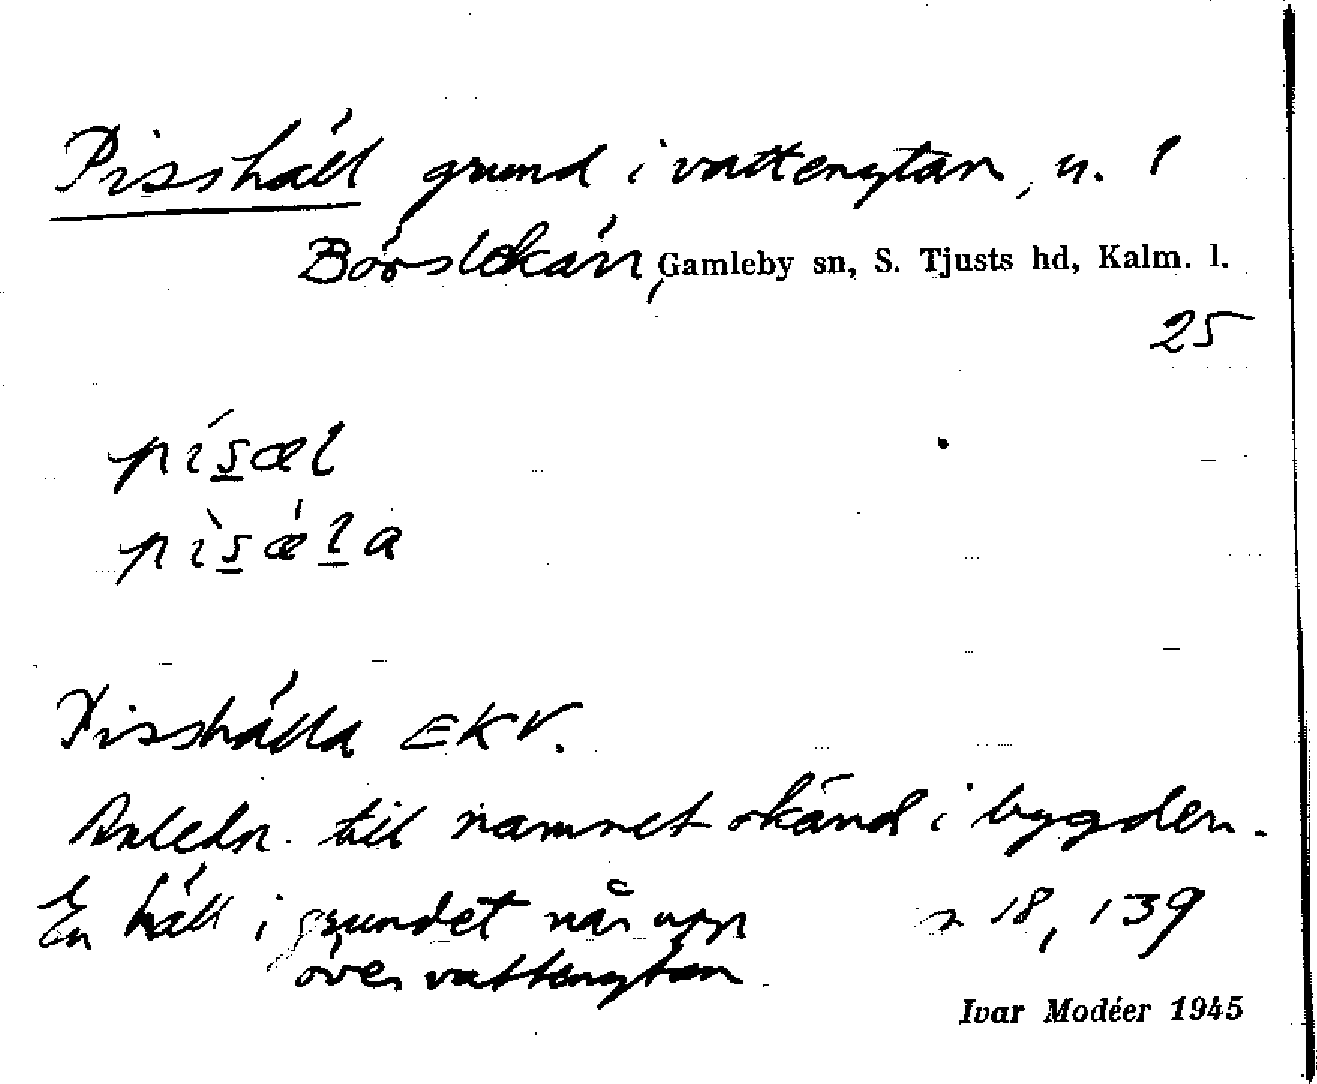 Pisshäll grund i vattenytan, n. f
Börsleskär, Gamleby sn, S. Tjusts hd, Kalm. l.
25
písæl
pìsǽla
Pisshälla EKV.
Anledn. till namnet okänd i bygden.
En häll i grundet når upp
över vattenytan.
s 18, 139
Ivar Modéer 1945